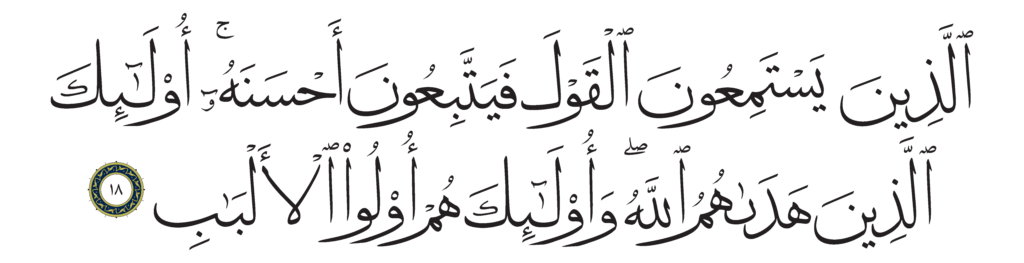 ٱلَّذِينَ يَسْتَمِعُونَ ٱلْقَوْلَ فَيَتَّبِعُونَ أَحْسَنَهُۥٓ ۚ أُوْلَٰٓئِكَ
ٱلَّذِينَ هَدَىٰهُمُ ٱللَّهُ ۖ وَأُوْلَٰٓئِكَ هُمْ أُوْلُواْ ٱلْأَلْبَٰبِ ١٨